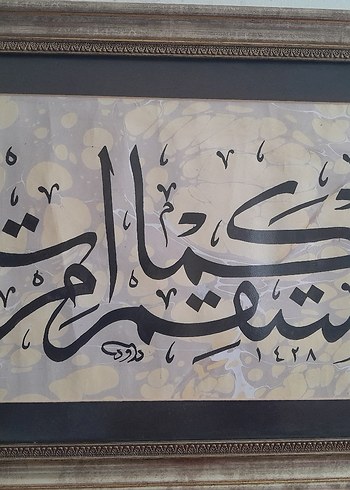 ستقم كما امرت
داود ١٤٢٨